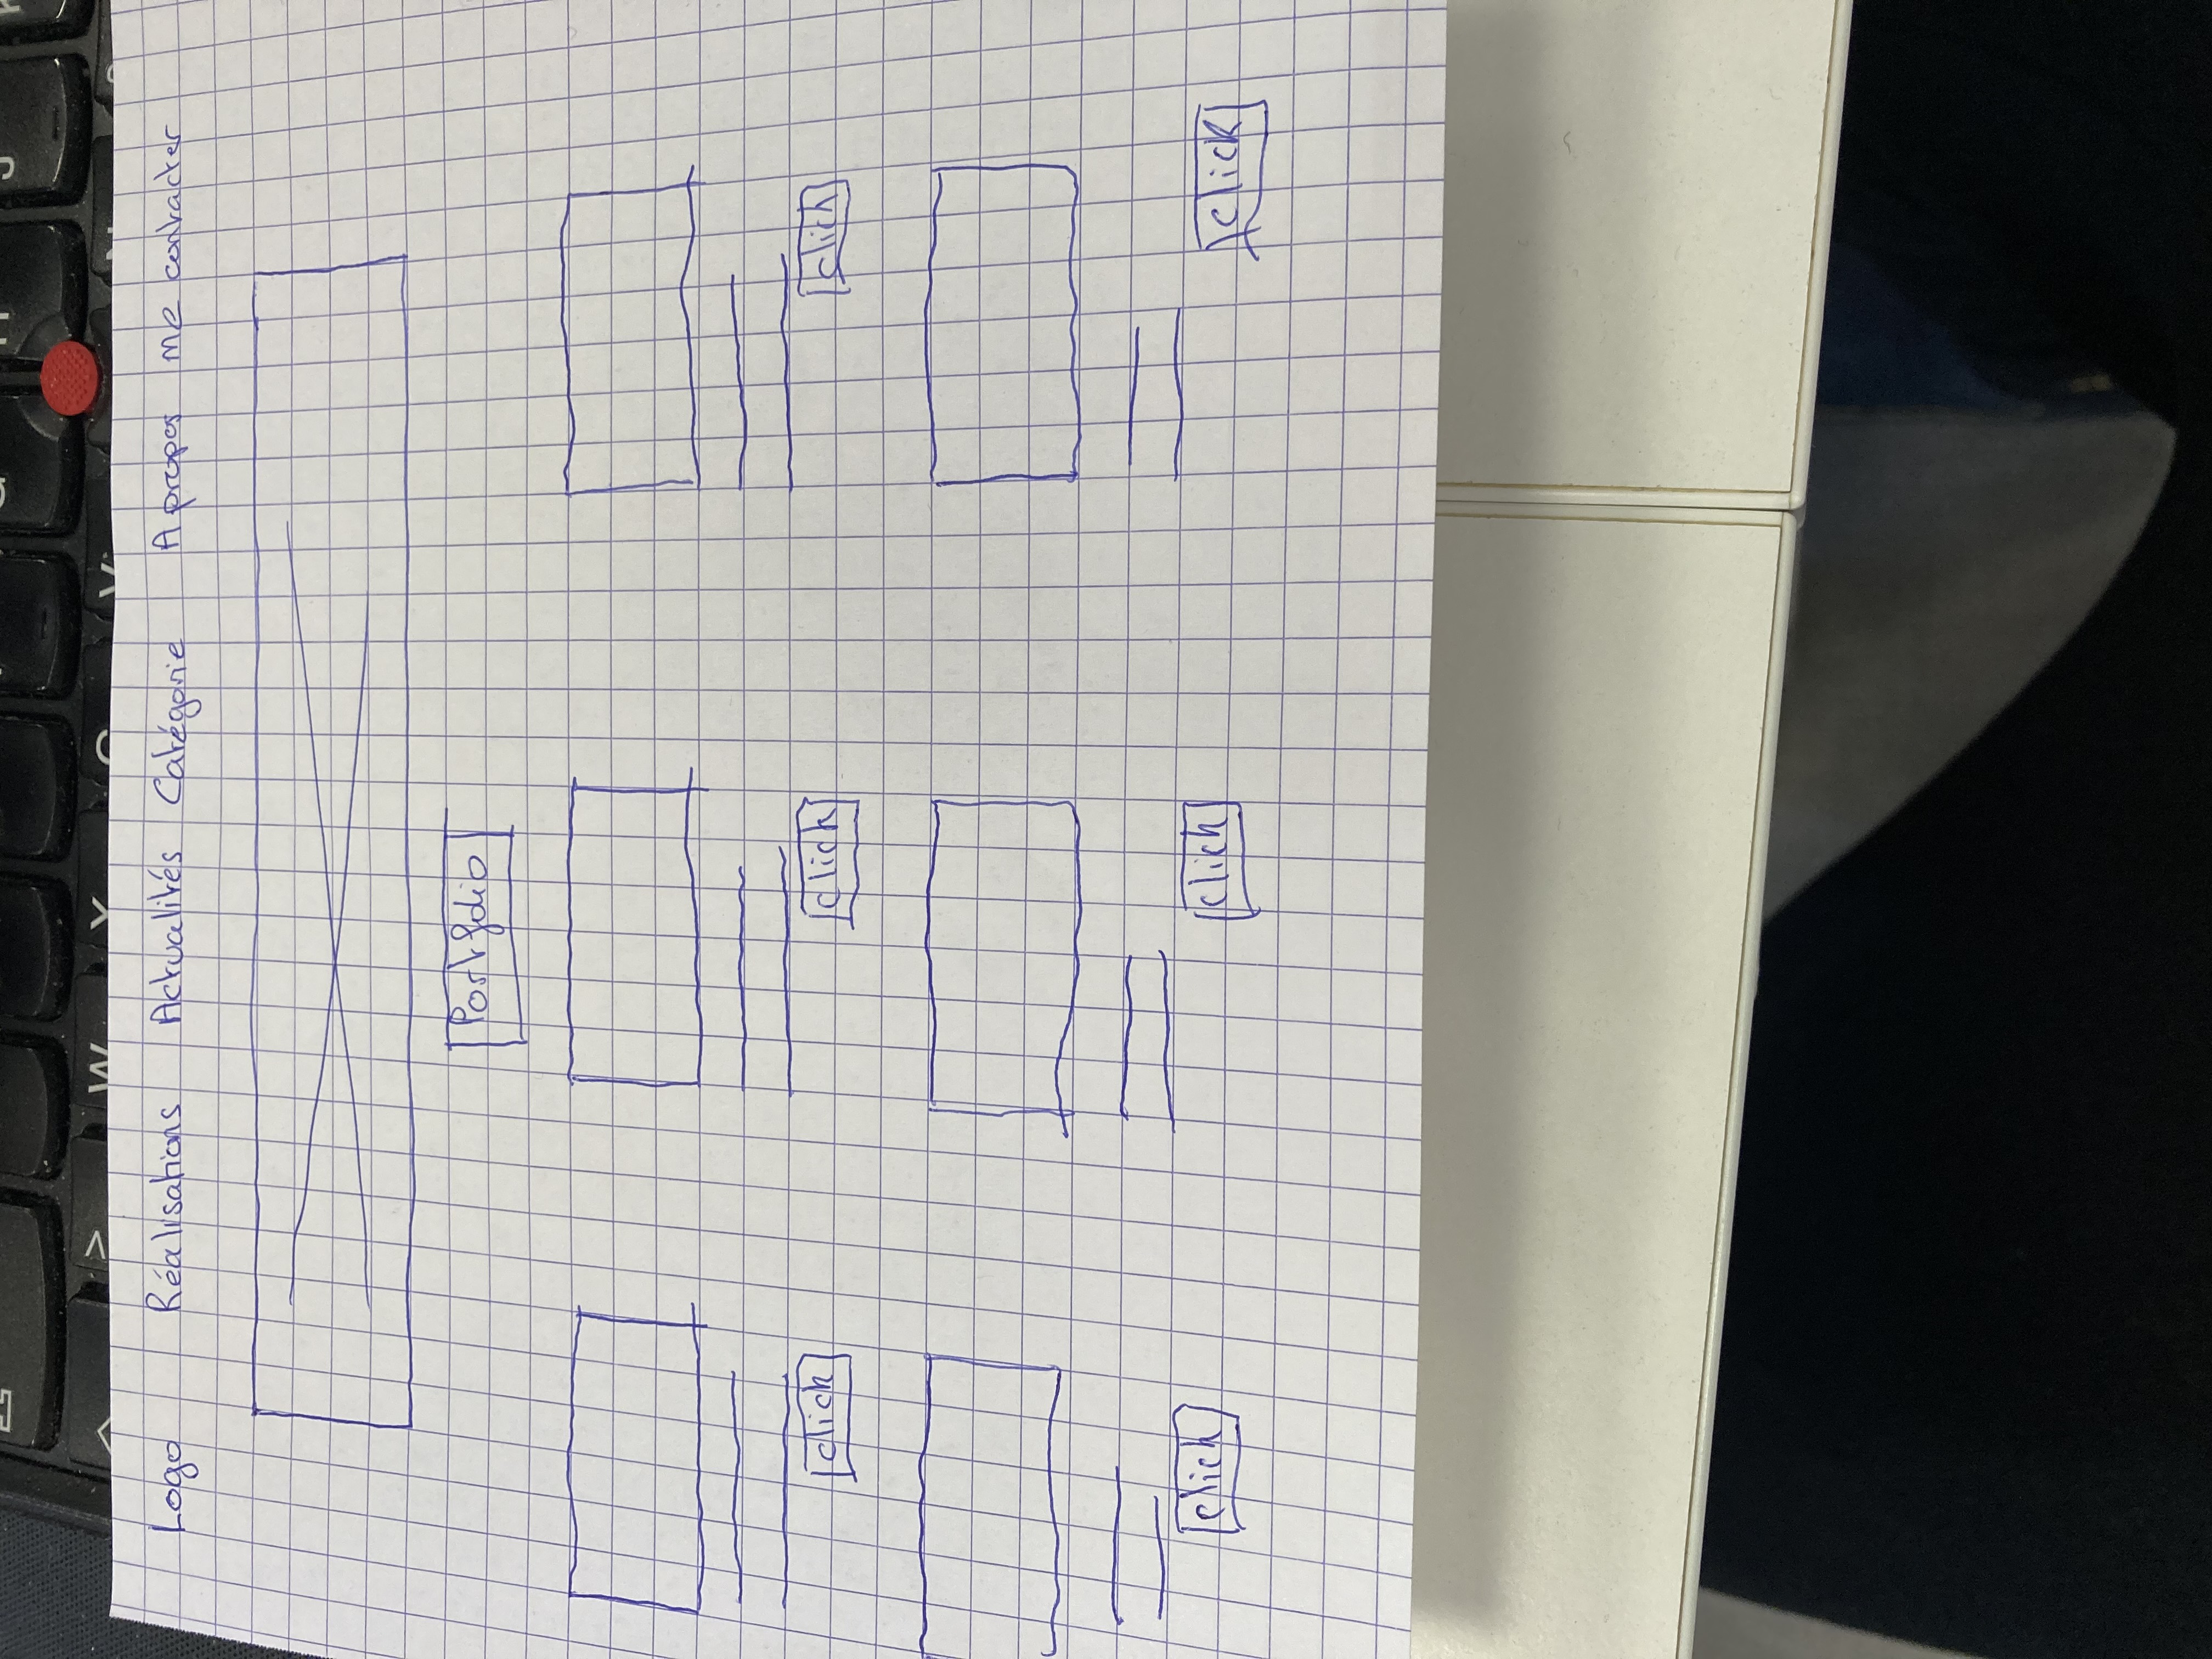 W Y
Logo Réalisations Actualités Catégorie A propos me contacter
Portfolio
click click click
click click click